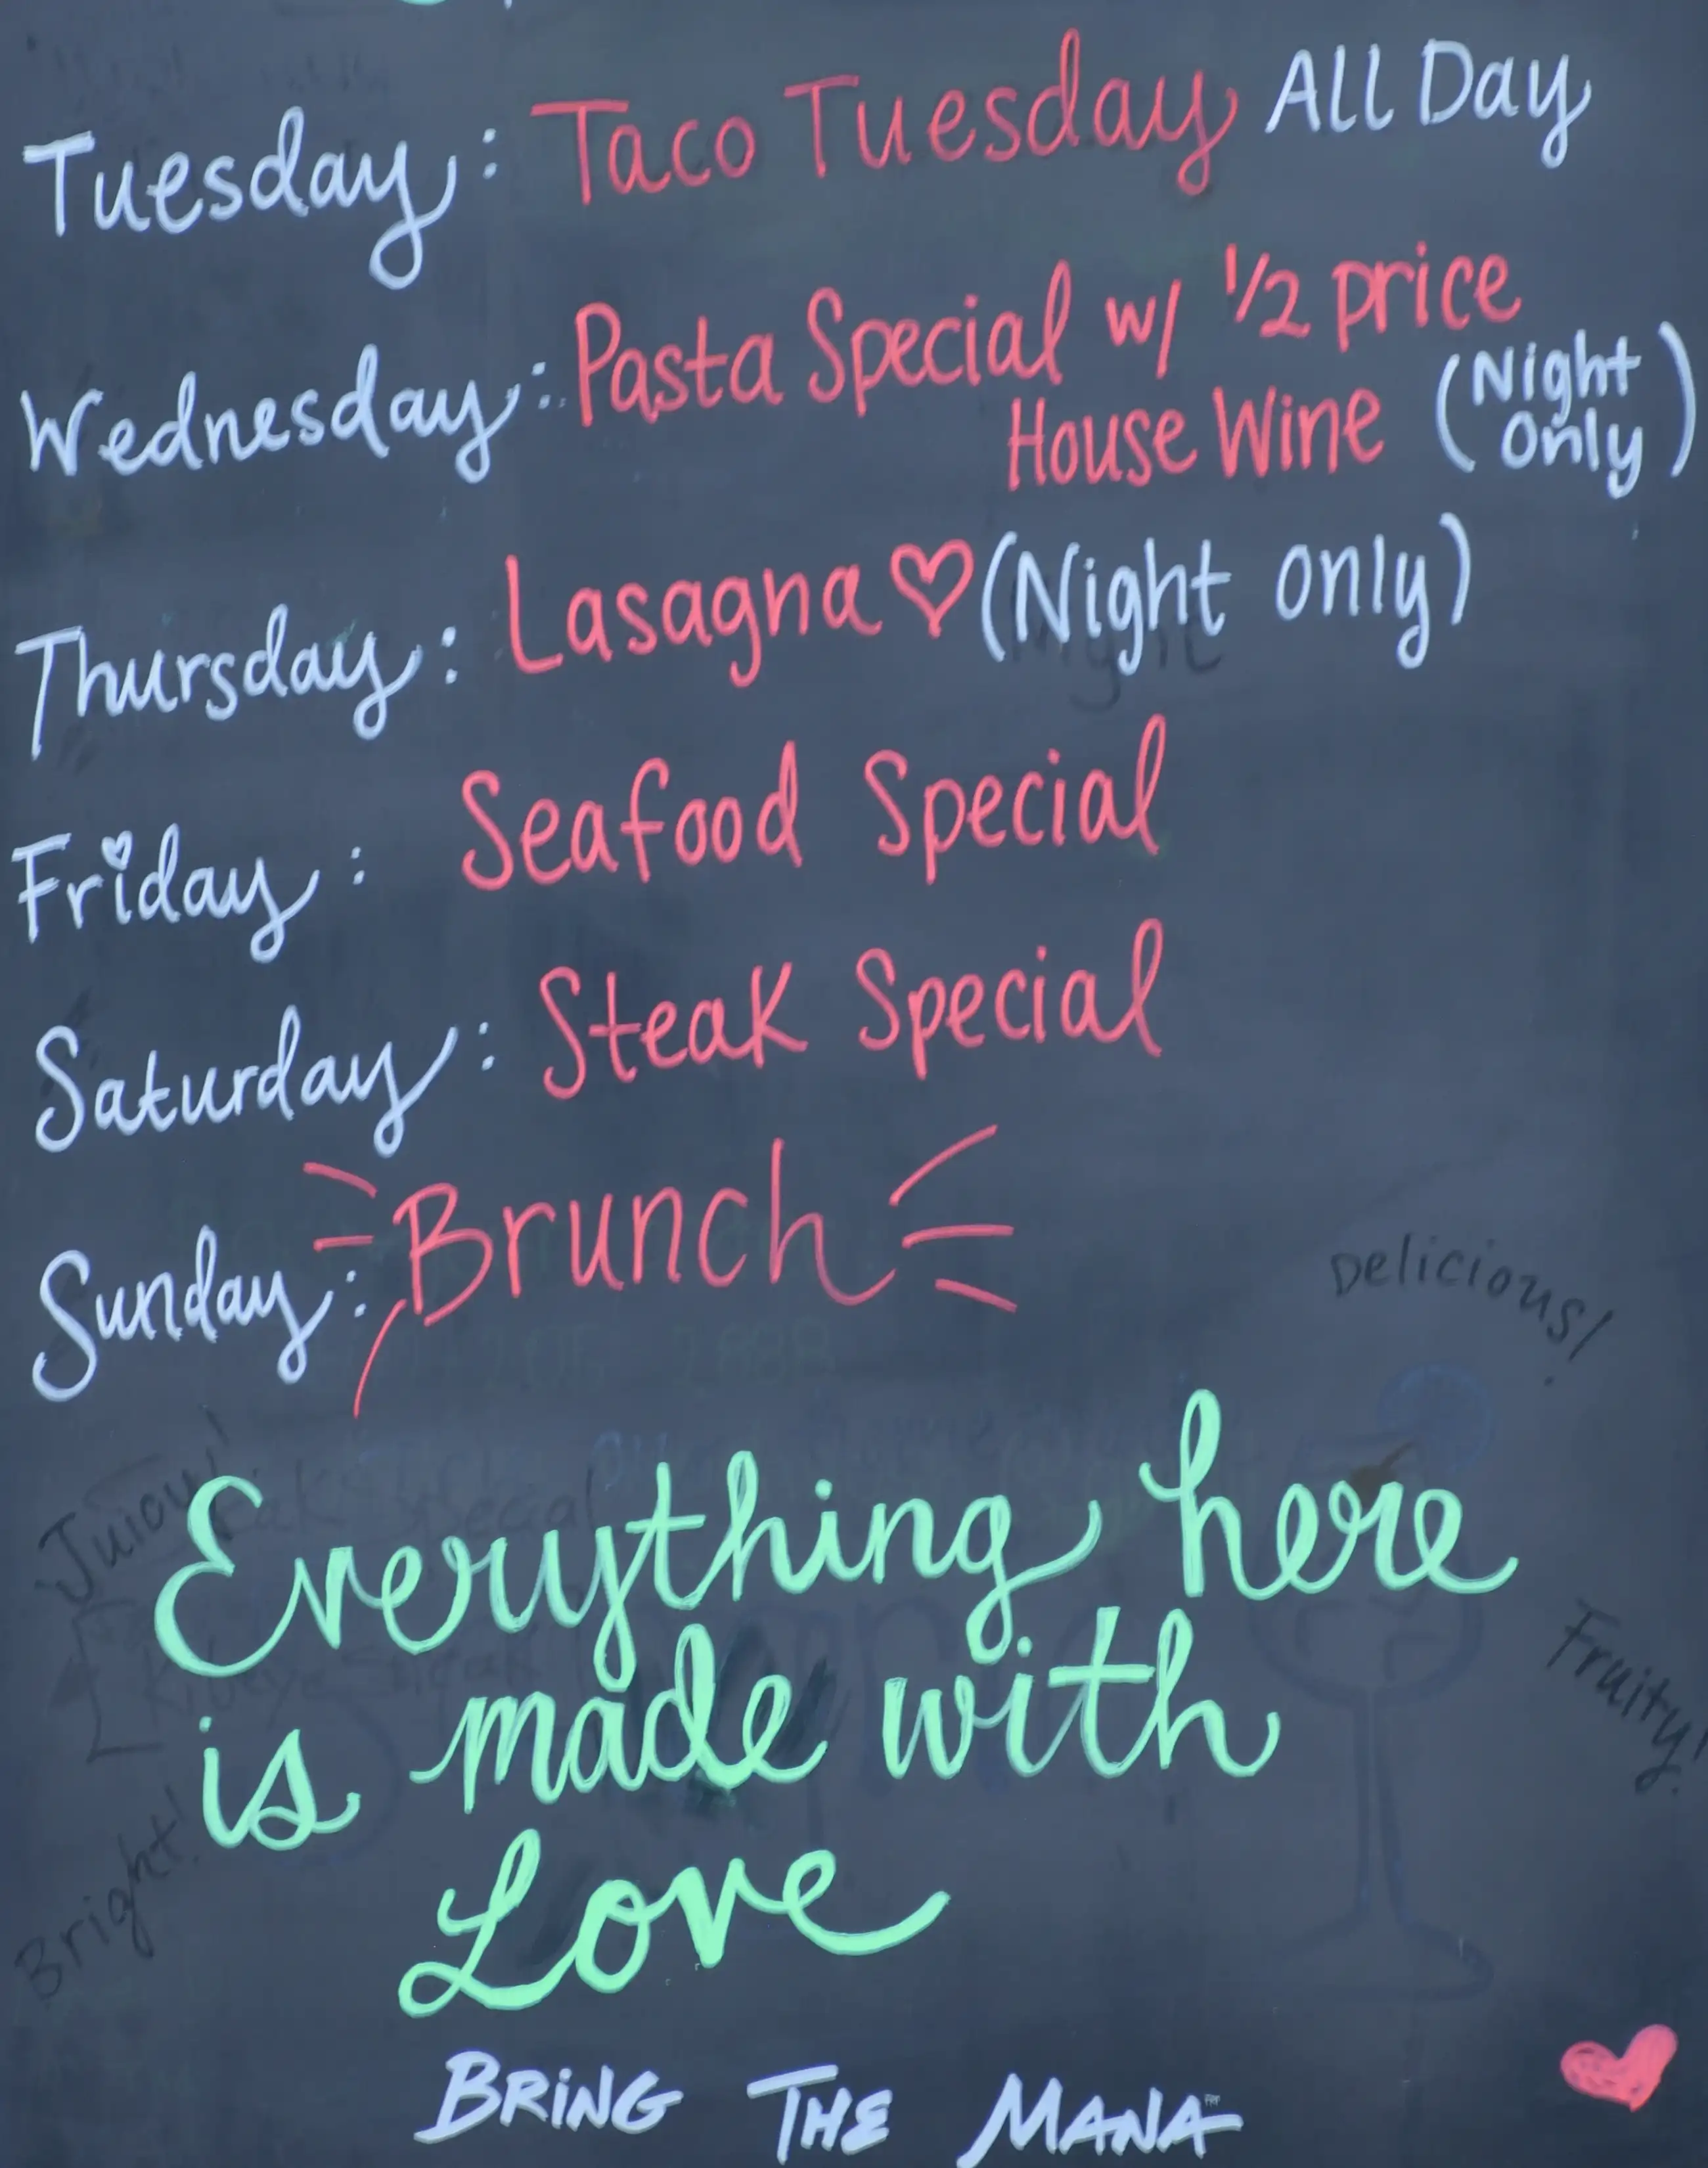 Tuesday: Taco Tuesday All Day
Wednesday: Pasta Special w/ 1/2 price
House Wine (Night Only)
Thursday: Lasagna ♡ (Night only)
Friday: Seafood Special
Saturday: Steak Special
Sunday: Brunch
Delicious!
Juicy!
Everything here
is made with
Love
Fruity!
Bright!
BRING THE MANA